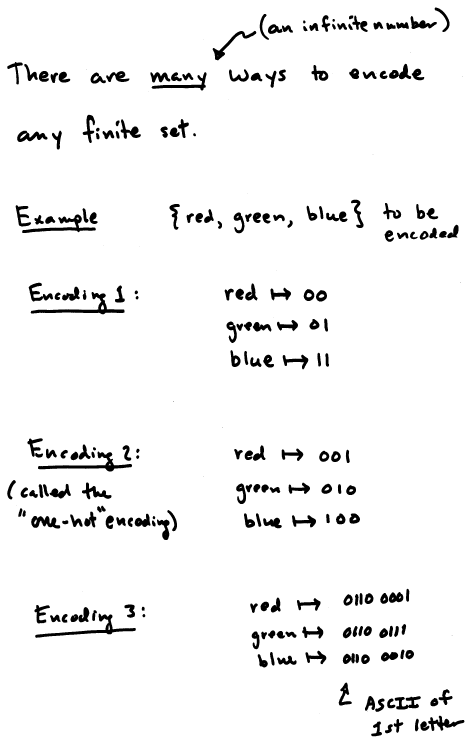 (an infinite number)
There are many ways to encode
any finite set.
Example {red, green, blue} to be
encoded
Encoding 1: red ↦ 00
green ↦ 01
blue ↦ 11
Encoding 2: red ↦ 001
(called the green ↦ 010
"one-hot" encoding) blue ↦ 100
Encoding 3: red ↦ 0110 0001
green ↦ 0110 0111
blue ↦ 0110 0010
ASCII of
1st letter